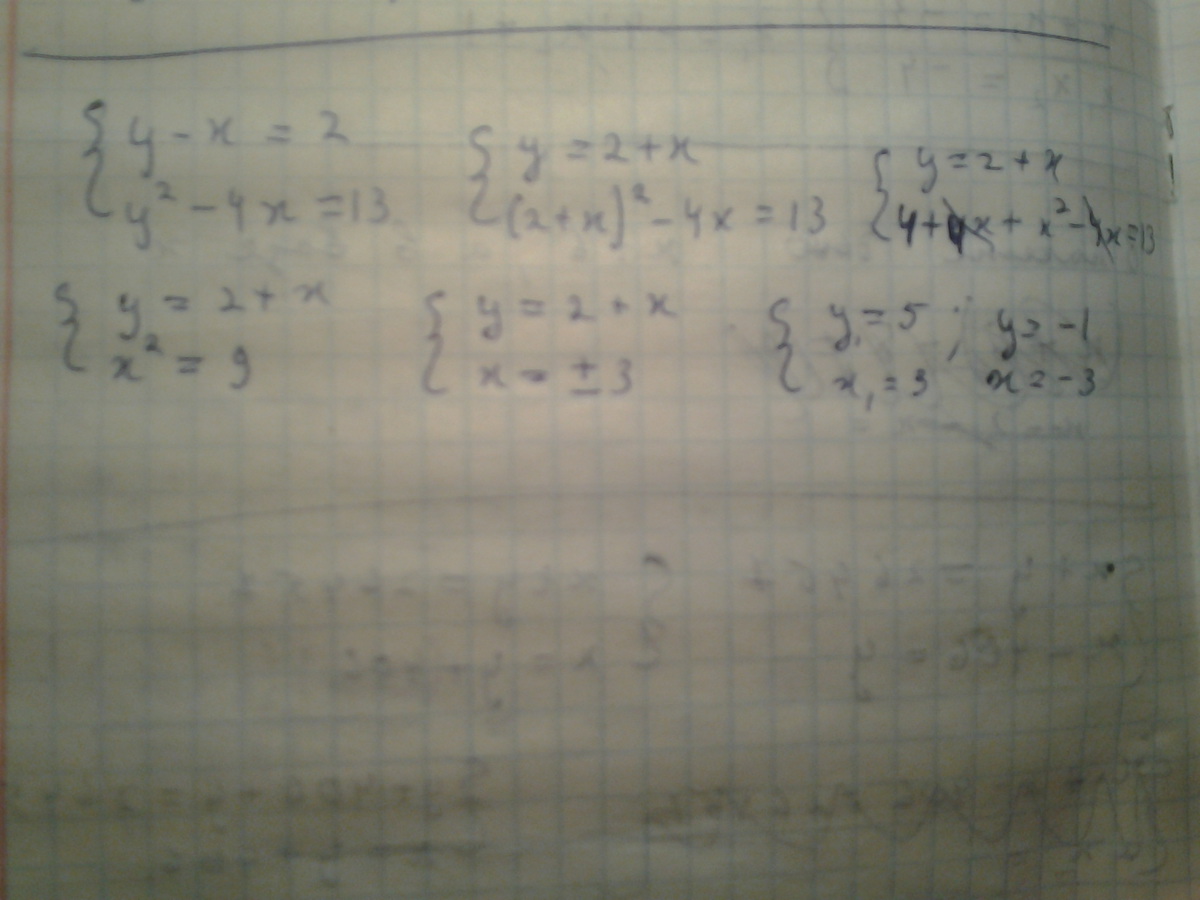 { y - x = 2
y² - 4x = 13
{ y = 2 + x
(2+x)² - 4x = 13
{ y = 2 + x
4 + 4x + x² - 4x = 13
{ y = 2 + x
x² = 9
{ y = 2 + x
x = ± 3
{ y₁ = 5 ; y = -1
x₁ = 3 x = -3